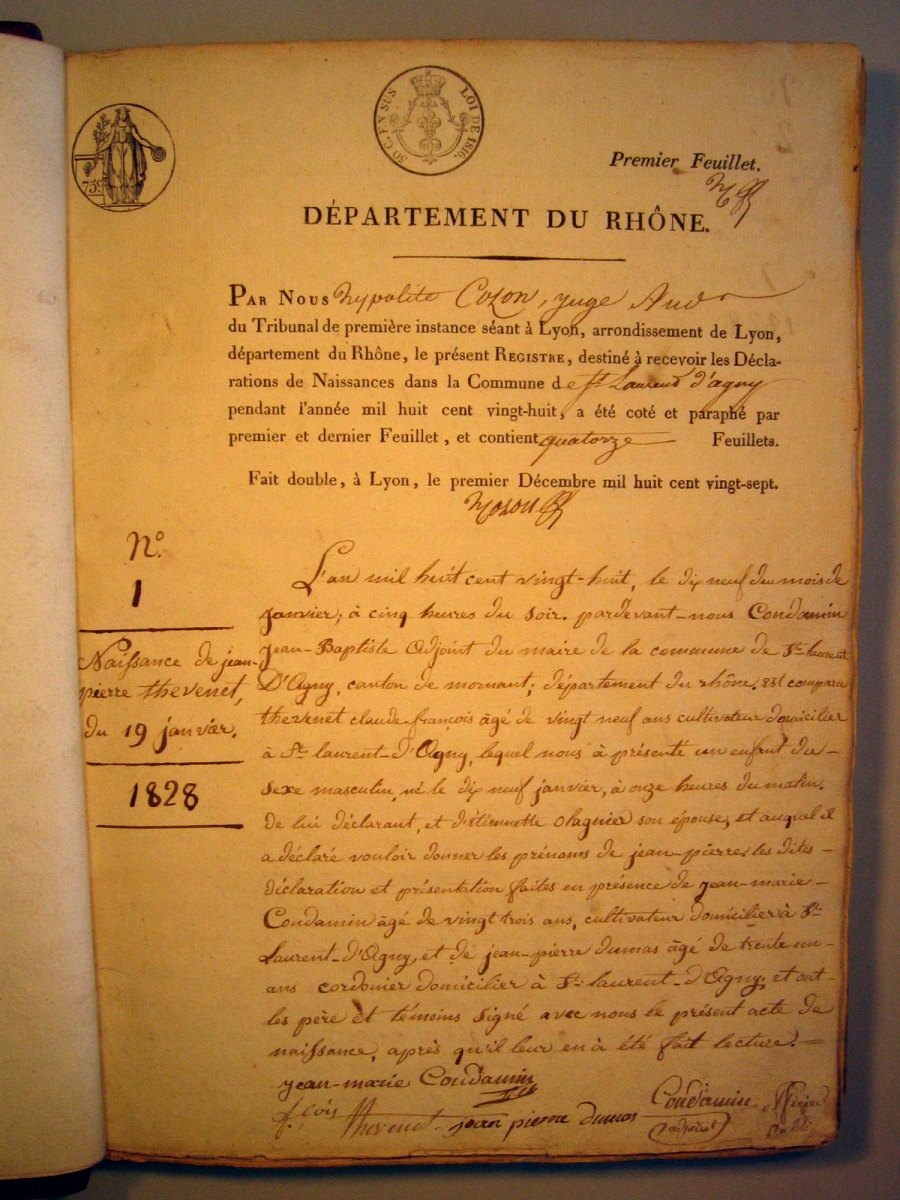 30 C. EN SUS LOI DE 1816.
75c
Premier Feuillet.
DÉPARTEMENT DU RHÔNE.
PAR NOUS hypolite Cozon, juge Audr
du Tribunal de première instance séant à Lyon, arrondissement de Lyon,
département du Rhône, le présent REGISTRE, destiné à recevoir les Décla-
rations de Naissances dans la Commune d e St Laurend d'agny
pendant l'année mil huit cent vingt-huit, a été coté et paraphé par
premier et dernier Feuillet, et contient quatorze Feuillets.
Fait double, à Lyon, le premier Décembre mil huit cent vingt-sept.
N.o
1
Naissance de jean-
pierre thevenet,
du 19 janvier.
1828
L'an mil huit cent vingt-huit, le dix neuf du mois de
janvier, à cinq heures du soir. pardevant-nous Condamin
jean-Baptiste adjoint du maire de la commune de St laurent
D'Agny, canton de mornant, département du rhône, est comparu
thevenet claude françois âgé de vingt neuf ans cultivateur domicilier
à St laurent-d'Agny, lequel nous à présenté un enfant du-
sexe masculin, né le dix neuf janvier, à onze heures du matin,
de lui déclarant, et d'étiennette olagnier son épouse, et auquel il
a déclaré vouloir donner les prénoms de jean-pierre, les dites-
déclaration et présentation faites en présence de jean-marie-
Condamin âgé de vingt trois ans, cultivateur domicilier à St
Laurent-d'Agny, et de jean-pierre dumas âgé de trente un-
ans cordonier domicilier à St laurent-d'Agny, et ont-
les père et témoins signé avec nous le présent acte de
naissance, après qu'il leur en à été fait lecture.-
jean-marie Condamin
f.çois thevenet jean pierre dumas Condamin
adjoint